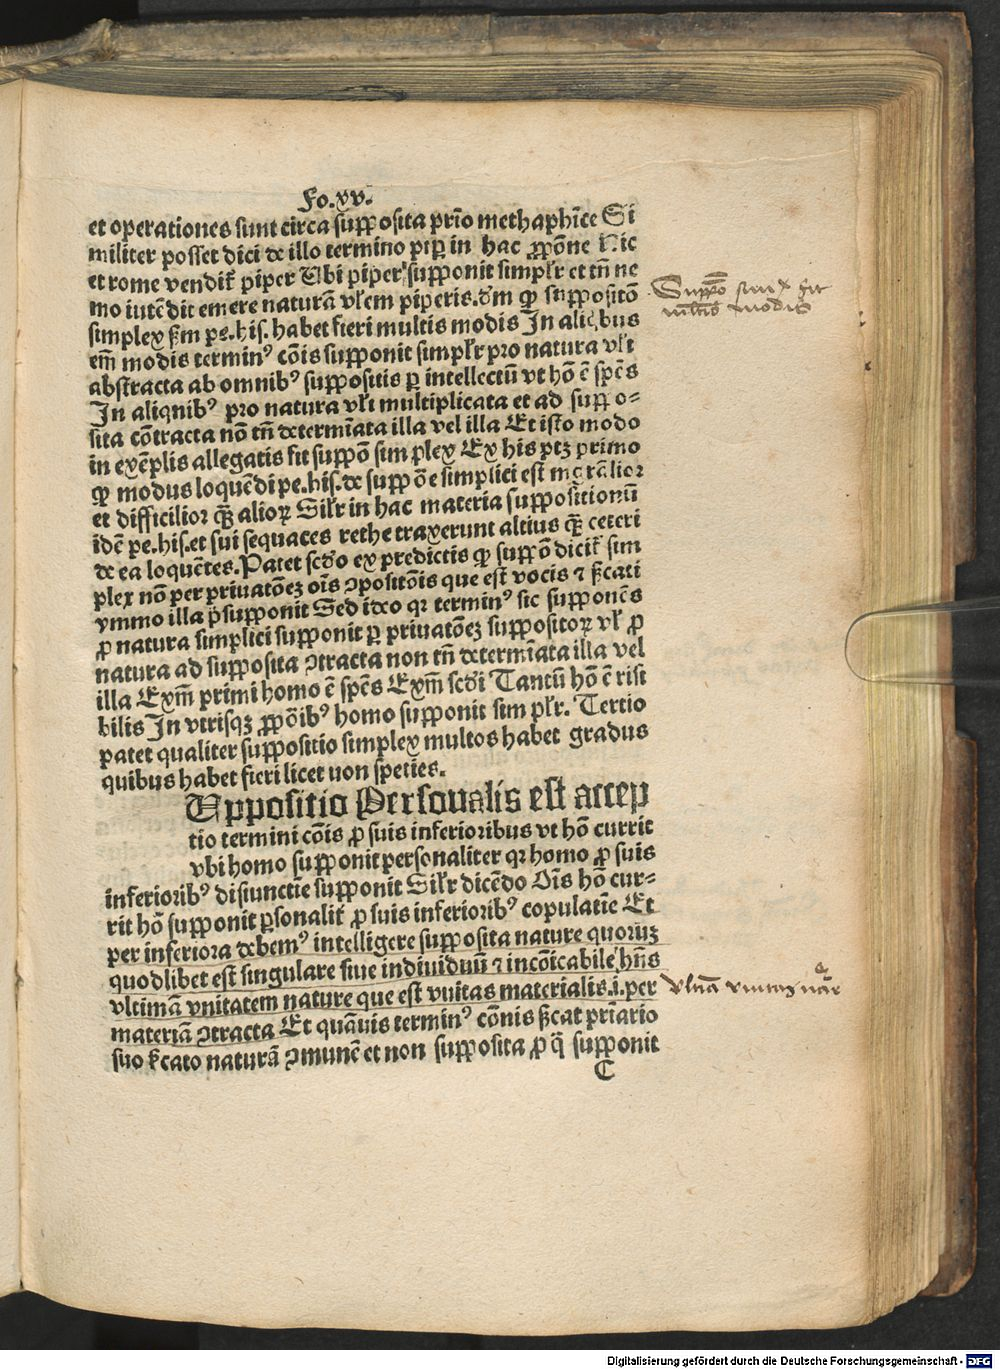 Fo.xv.
et operationes sunt circa supposita prīo methaphīce Si
militer posset dici de illo termino pip̄ in hac ꝓpōne hic
et rome vendit̄ piper Ubi piper supponit simplr̄ et tn̄ ne
mo intēdit emere naturā vl̄em piperis. dm̄ ꝙ suppositō
simplex ẜm pe.his. habet fieri multis modis In aliqbus
em̄ modis terminꝰ cōis supponit simplr̄ pro natura vl̄i
abstracta ab omnibꝰ suppositis ꝑ intellectū vt hō ē spēs
In aliquibꝰ pro natura vl̄i multiplicata et ad suppo-
sita cōtracta nō tn̄ determīata illa vel illa Et isto modo
in exēplis allegatis fit suppō simplex Ex his ptꝫ primo
ꝙ modus loquēdi pe.his. de suppōe simplici est mgr̄alior
et difficilior ꝙ̄ alioꝝ Silr̄ in hac materia suppositionū
idē pe.his. et sui sequaces rethe traxerunt altius ꝙ̄ ceteri
de ea loquētes. Patet scdo ex predictis ꝙ suppō dicit̄ sim
plex nō per priuatōeꝫ oīs ꝯpositōis que est vocis ⁊ ẜcati
ymmo illa p̄supponit Sed ideo qꝛ terminꝰ sic supponēs
ꝓ natura simplici supponit ꝑ priuatōeꝫ suppositoꝝ vl̄ ꝓ
natura ad supposita ꝯtracta non tn̄ determīata illa vel
illa Exm̄ primi homo ē spēs Exm̄ scdi Tantū hō ē risi
bilis In vtrisqꝫ ꝓpōibꝰ homo supponit simplr̄. Tertio
patet qualiter suppositio simplex multos habet gradus
quibus habet fieri licet non speties.
Uppositio Personalis est accep
tio termini cōis ꝓ suis inferioribus vt hō currit
vbi homo supponit personaliter qꝛ homo ꝓ suis
inferioribꝰ disiunctīe supponit Silr̄ dicēdo Oīs hō cur-
rit hō supponit ꝑsonalit̄ ꝓ suis inferioribꝰ copulatīe Et
per inferiora debemꝰ intelligere supposita nature quoruꝫ
quodlibet est singulare siue indiuiduū ⁊ incōicabile hn̄s
vltimā vnitatem nature que est vnitas materialis.i.per
materiā ꝯtracta Et quāuis terminꝰ cōnis ẜcat priārio
suo ẜcato naturā ꝯmunē et non supposita ꝓ q̄ supponit
C
Suppō simꝝ fit
mltis modis
vltīa vnitaꝫ